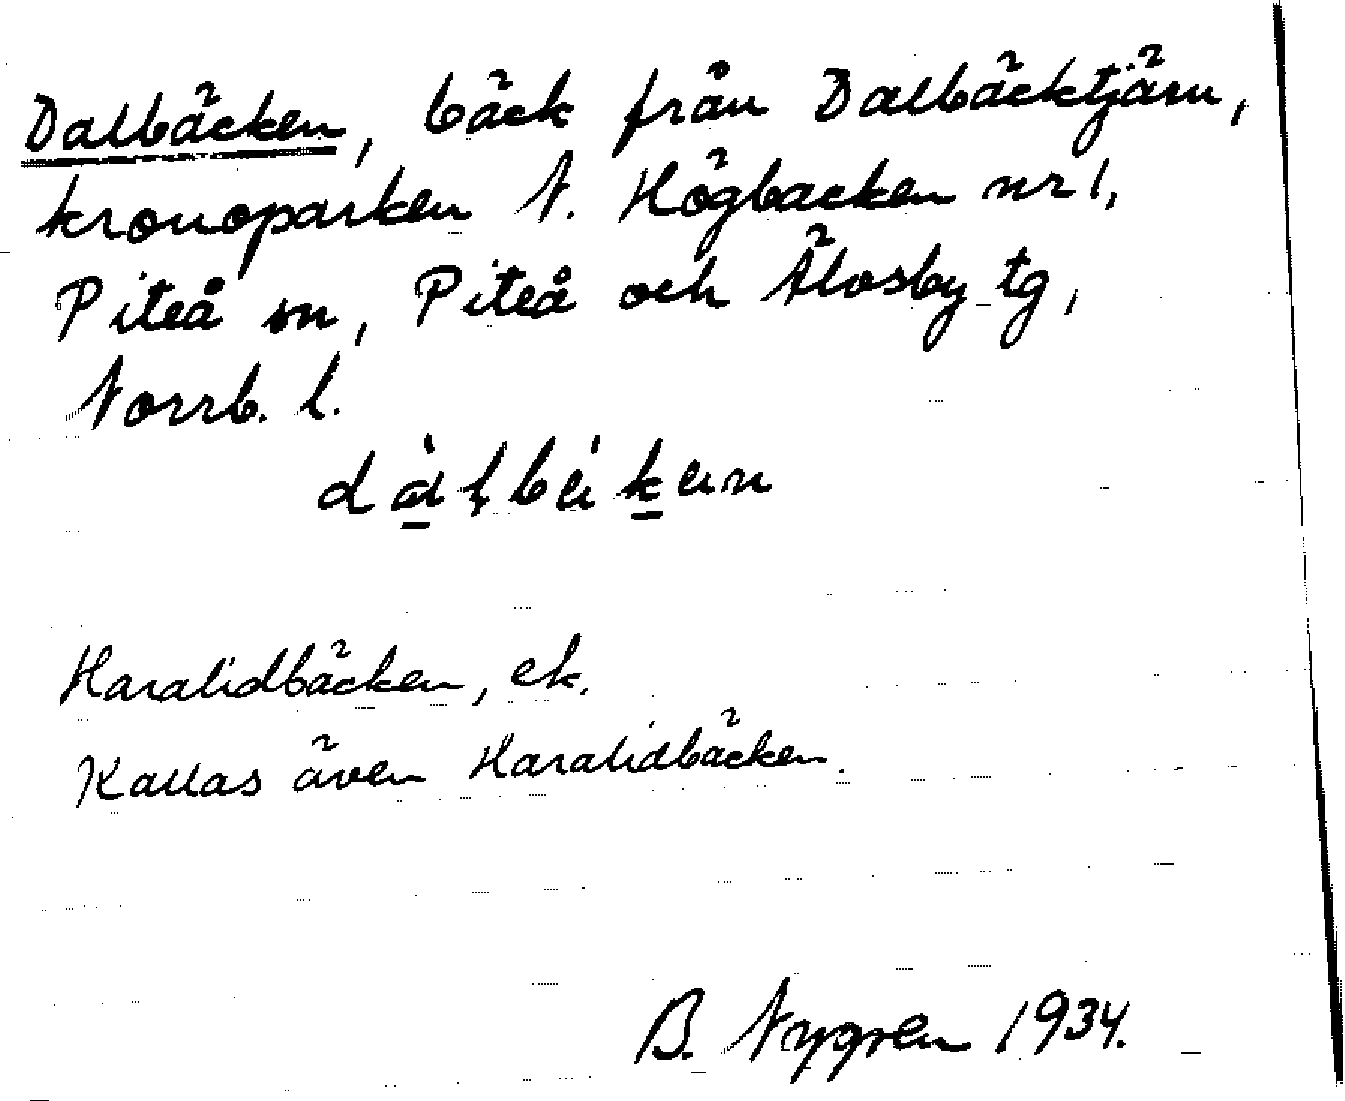 Dalbäcken, bäck från Dalbäcktjärn,
kronoparken N. Högbacken nr 1,
Piteå sn, Piteå och Älvsby tg,
Norrb. l.
Haralidbäcken, ek.
Kallas även Haralidbäcken.
B. Nygren 1934.